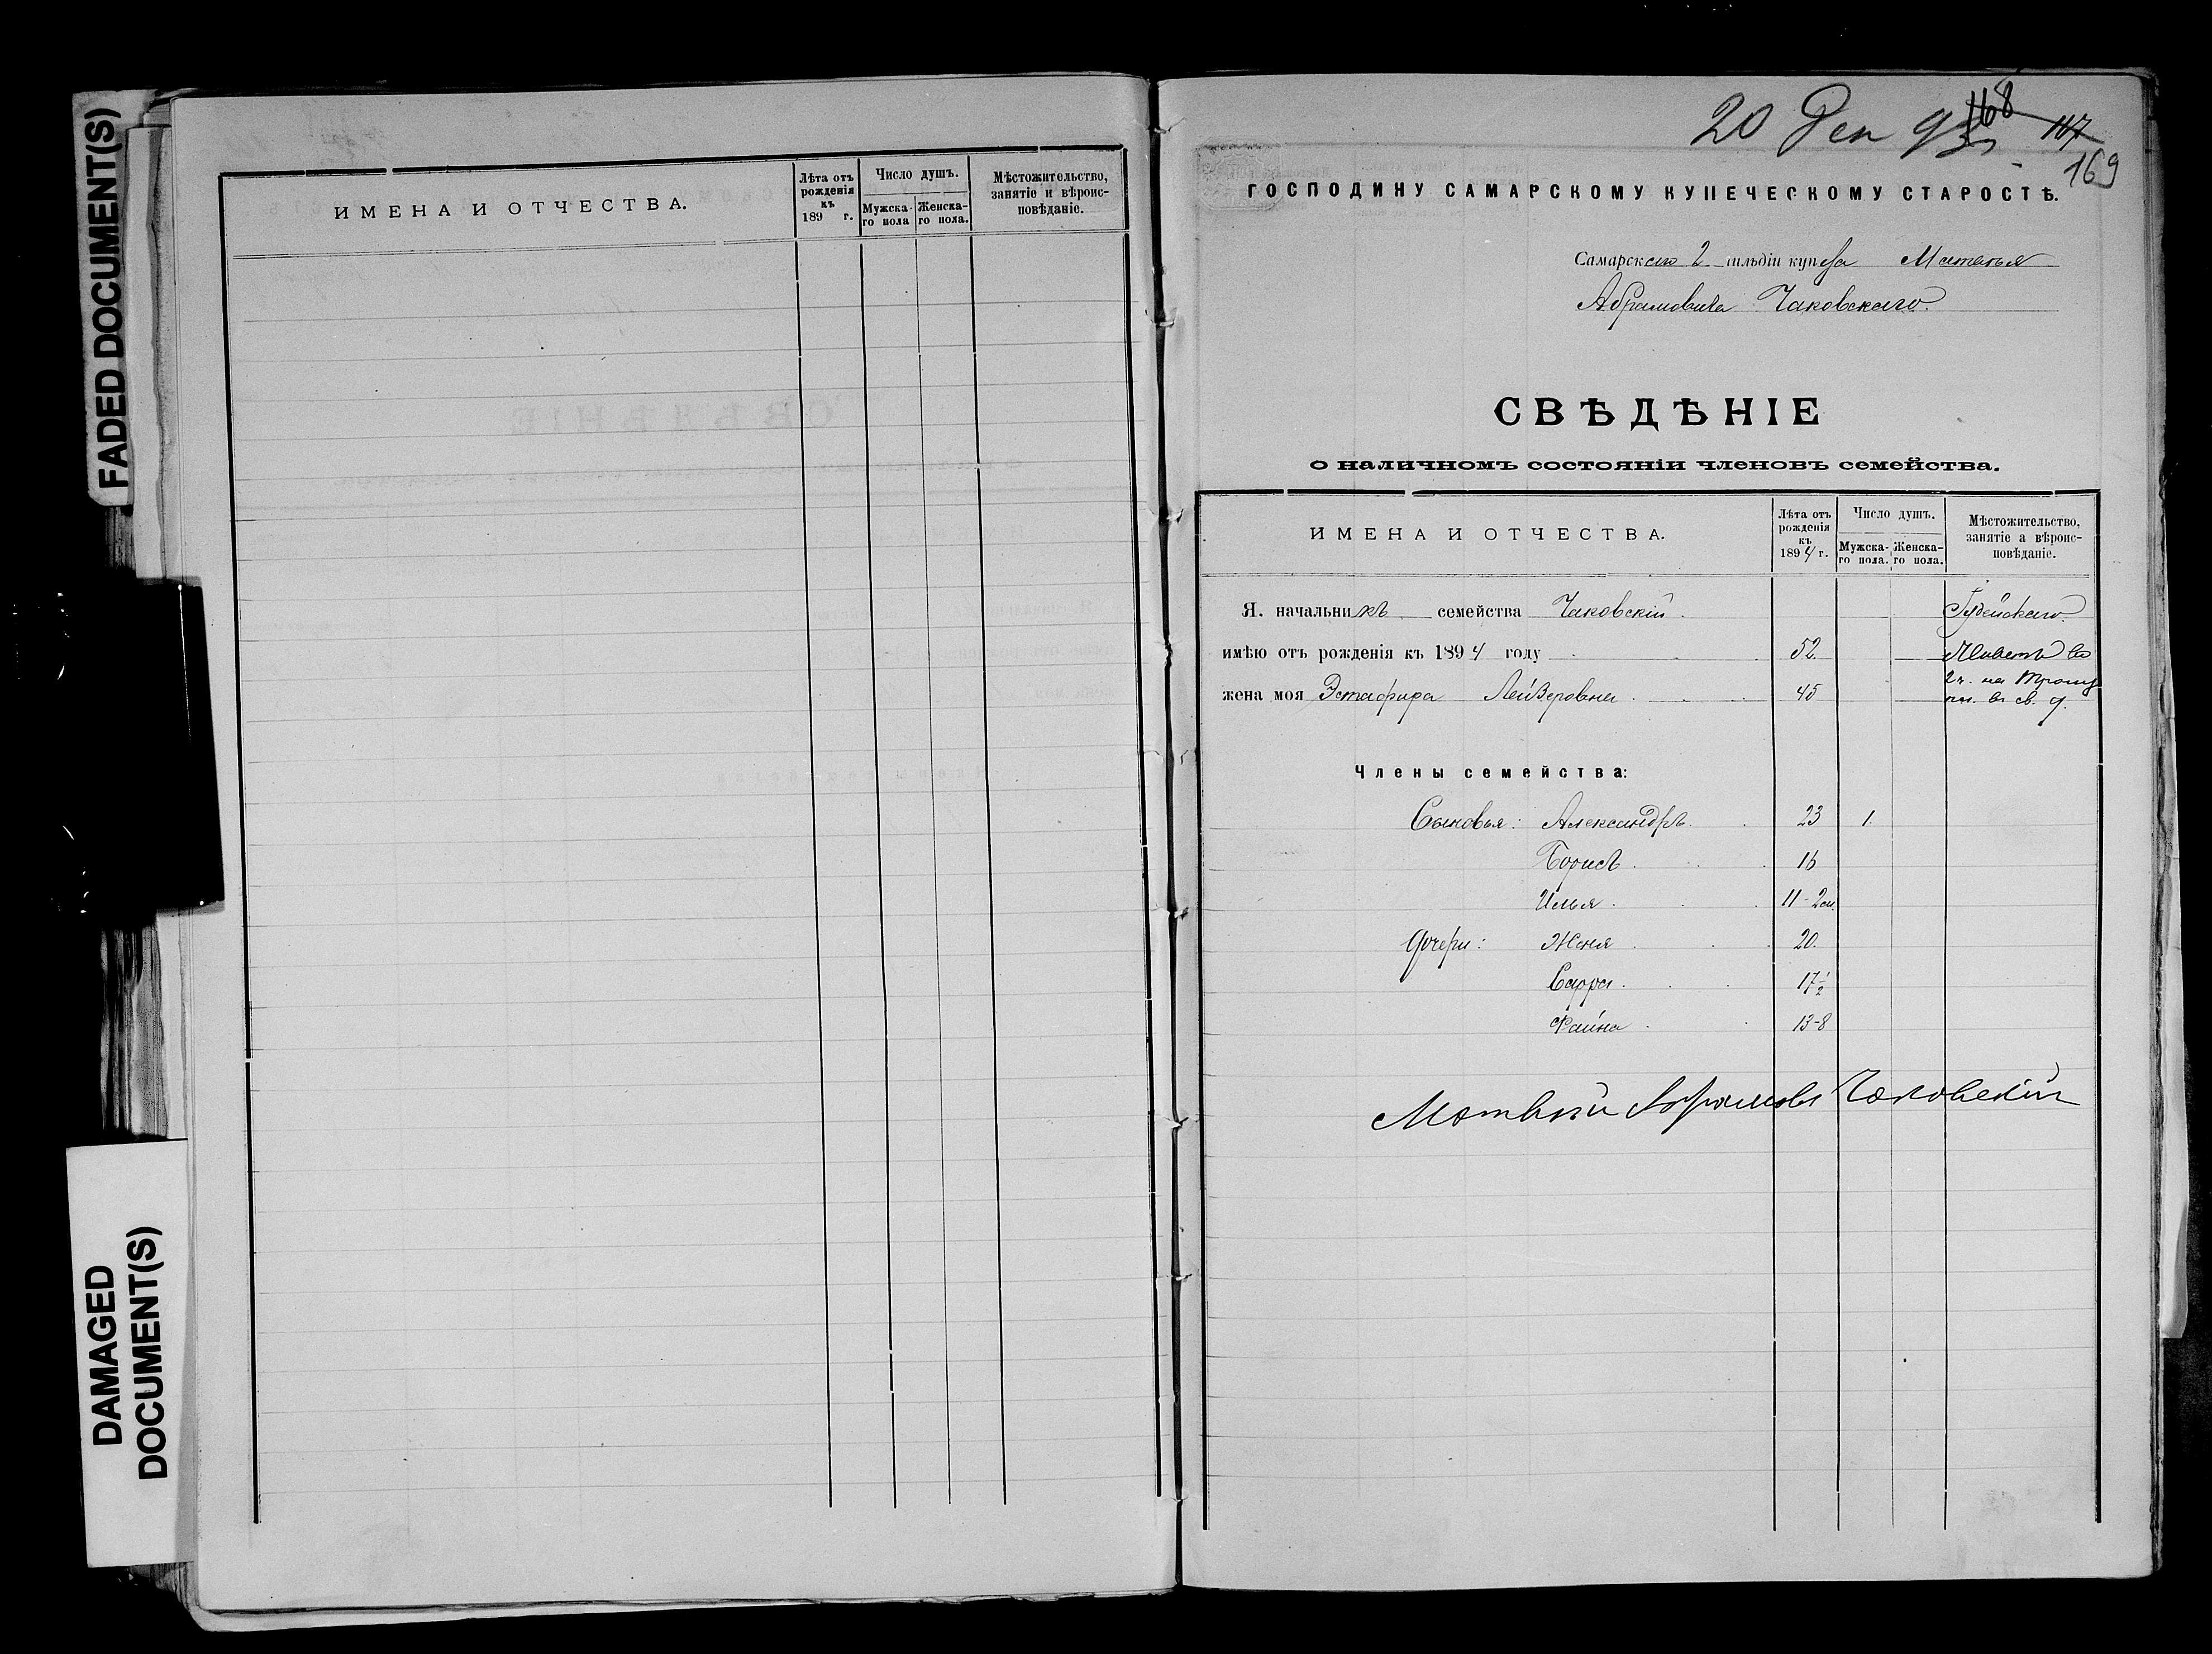 FADED DOCUMENT(S)
DAMAGED
DOCUMENT(S)
ИМЕНА И ОТЧЕСТВА.
Лѣта отъ рожденія къ 189 г.
Число душъ.
Мужска-го пола
Женска-го пола.
Мѣстожительство, занятіе и вѣроис-повѣданіе.
20 Дек 93
168
167
169
ГОСПОДИНУ САМАРСКОМУ КУПЕЧЕСКОМУ СТАРОСТѢ.
Самарскаго 2 гильдіи купца Матвѣя
Абрамовича Чаковскаго.
СВѢДѢНІЕ
о наличномъ состояніи членовъ семейства.
ИМЕНА И ОТЧЕСТВА.
Лѣта отъ рожденія къ 1894 г.
Число душъ.
Мужска-го пола.
Женска-го пола.
Мѣстожительство, занятіе а вѣроис-повѣданіе.
Я. начальникъ семейства Чаковскій. Іудейскаго.
имѣю отъ рожденія къ 1894 году 52. Живетъ во
жена моя Эстафира Лейзеровна 45 2 ч. на Троиц
въ св. д.
Члены семейства:
Сыновья: Александръ. 23 1.
Борисъ 16
Илья 11-2 м.
Дочери: Женя 20.
Сарра 17 1/2
Фаина 13-8
Матвѣй Абрамовъ Чаковскій